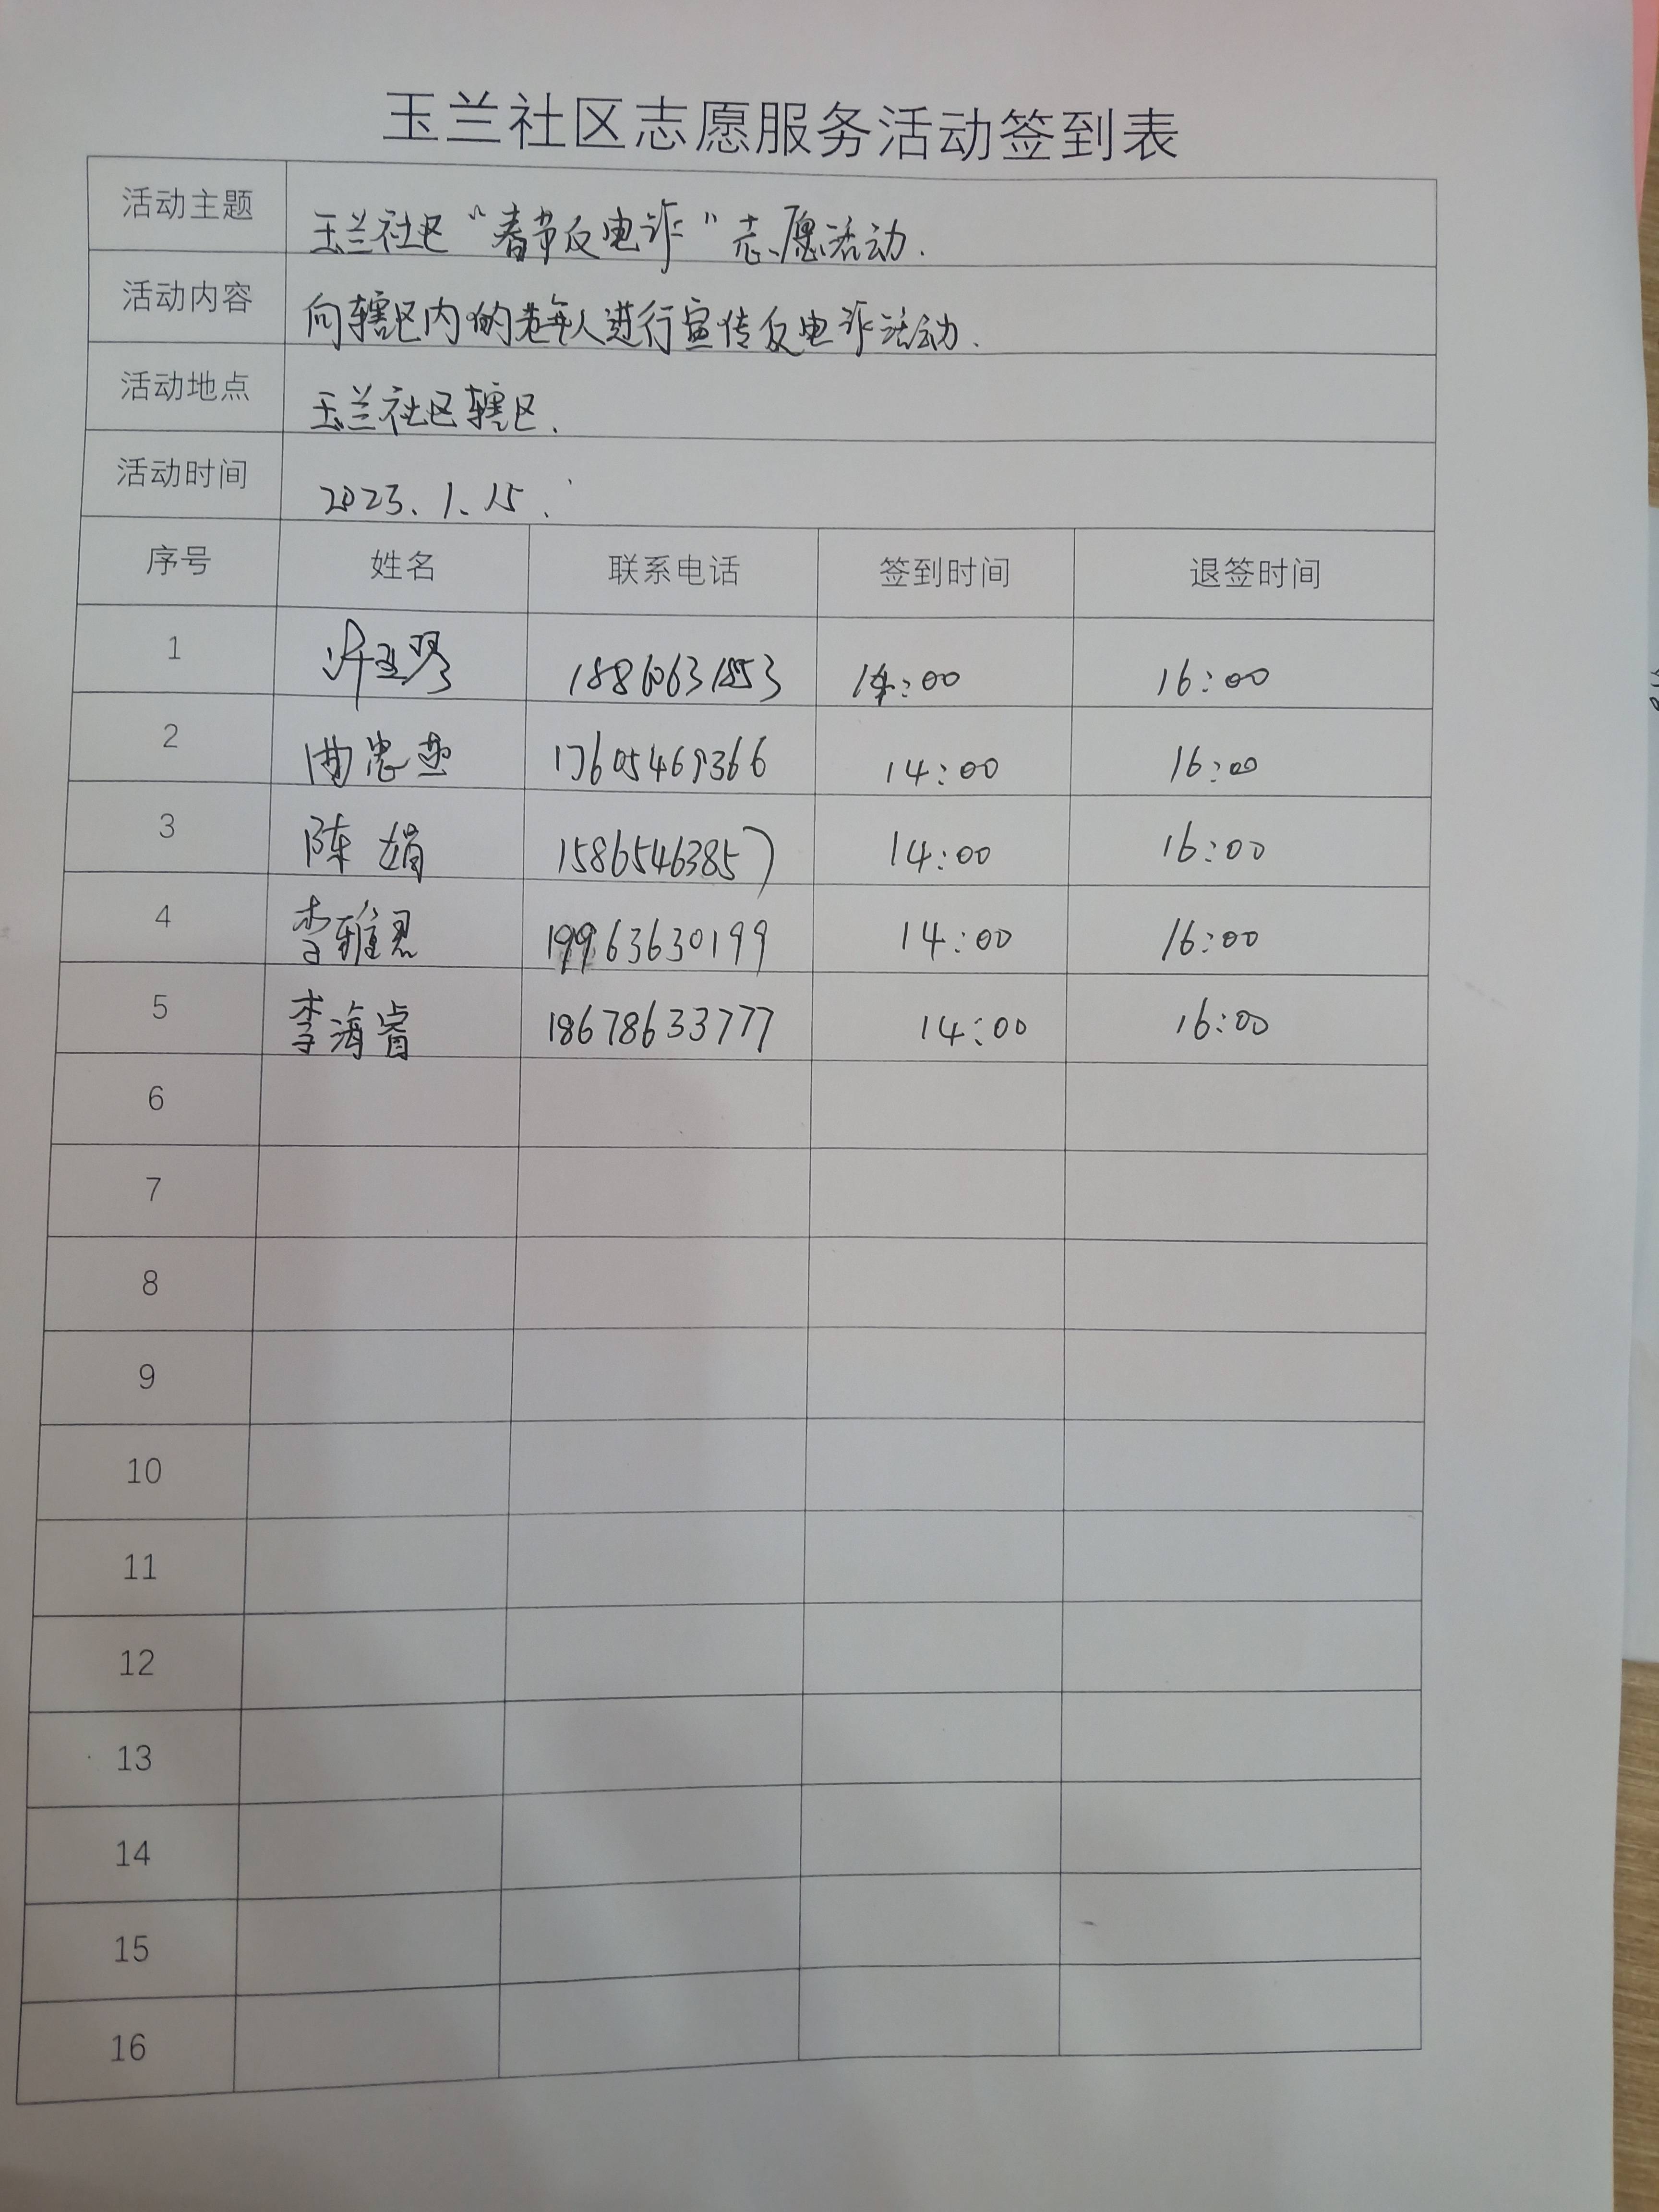 玉兰社区志愿服务活动签到表
活动主题 玉兰社区“春节反电诈”志愿活动.
活动内容 向辖区内的老年人进行宣传反电诈活动.
活动地点 玉兰社区辖区.
活动时间 2023.1.15.
序号 姓名 联系电话 签到时间 退签时间
1 许玉琴 18860631853 14:00 16:00
2 曲忠燕 17605469366 14:00 16:00
3 陈娟 15865463857 14:00 16:00
4 李雅君 19963630199 14:00 16:00
5 李海睿 18678633777 14:00 16:00
6
7
8
9
10
11
12
13
14
15
16